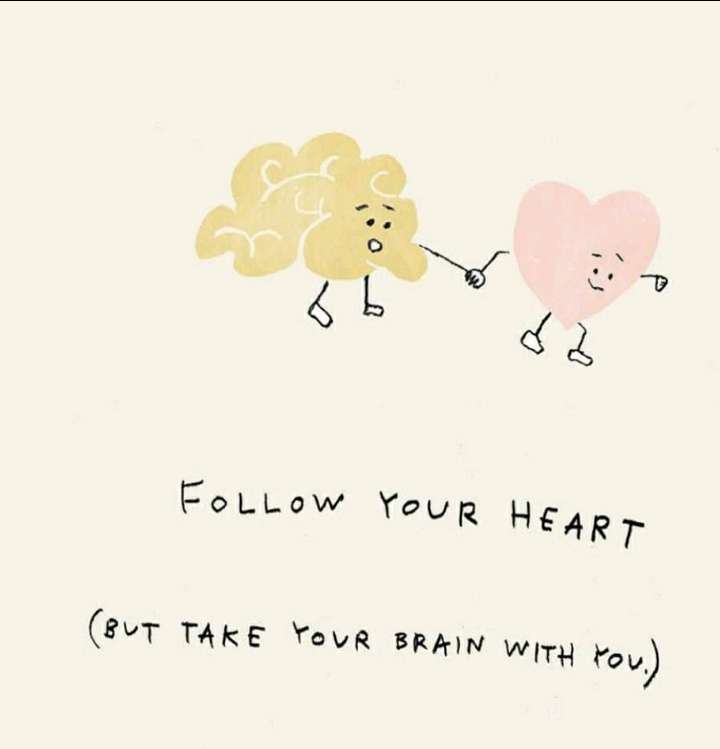 FOLLOW YOUR HEART
(BUT TAKE YOUR BRAIN WITH YOU.)